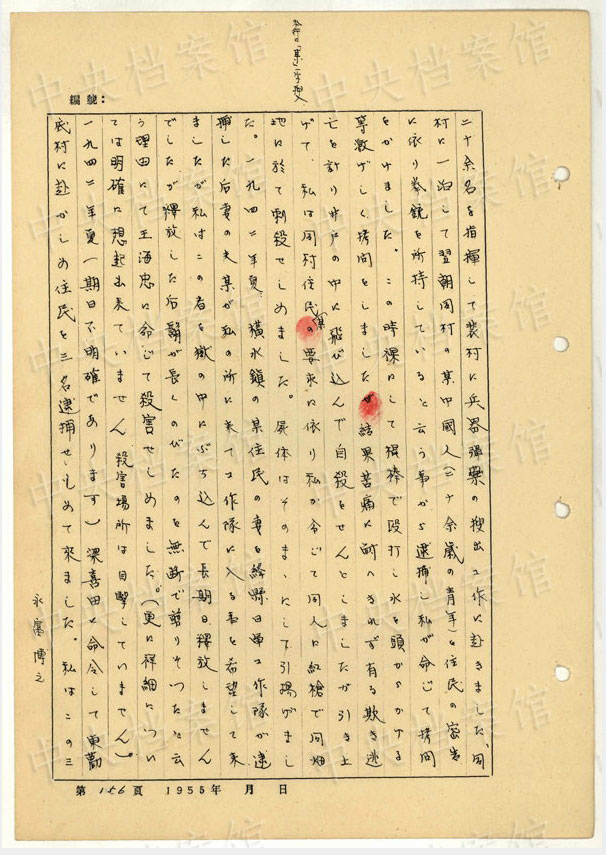 編號:
二十余名を指揮して裴村に兵器弾薬の捜出工作に赴きました、同
村に一泊して翌朝同村の某中國人(二十余歳の青年)を住民の密告
に依り拳銃を所持していると云う事から逮捕し私が命じて拷問
をかけました。この時裸にして棍棒で殴打し水を頭からかける
等激しく拷問をしました 結果苦痛に耐へきれず有る欺き逃
亡を計り井戸の中に飛び込んで自殺をせんとしましたが引き上
げて、私は同村住民の要求に依り私が命じて同人に紅槍で同畑
地に於て刺殺せしめました。屍体はそのままにして引揚げまし
た。一九四二年夏、横水鎮の某住民の妻を絳縣日華工作隊が逮
捕した后妻の夫某が私の所に来て工作隊に入る事を希望して来
ましたが私はこの者を獄の中にぶち込んで長期日釈放しません
でしたが釈放した后髯が長くのびたのを無断で剪りそったと云
う理由にて王海忠に命じて殺害せしめました。(更に祥細につい
ては明確に想起出来ていません 殺害場所は目撃していません)。
一九四二年夏(期日不明確であります)梁喜田に命令して東勸
底村に赴かしめ住民を三名逮捕せしめて来ました。私はこの三
永富博之
第156頁 1955年 月 日
中央档案馆